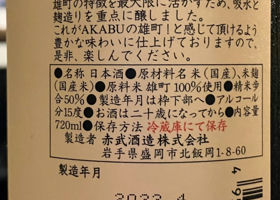 雄町の特徴を最大限に活かすため、吸水と
麹造りを重点に醸しました。
これがAKABUの雄町！と感じて頂けるよう
豊かな味わいに仕上げておりますので、
是非、楽しんでください。
●名称 日本酒●原材料名 米（国産）、米麹
（国産米）●原料米 雄町100％使用●精米歩
合50％●製造年月は枠下部へ●アルコール
分15度●お酒は二十歳になってから●内容量
720ml●保存方法 冷蔵庫にて保存
製造者 赤武酒造株式会社
岩手県盛岡市北飯岡1-8-60
製造年月
2023.4